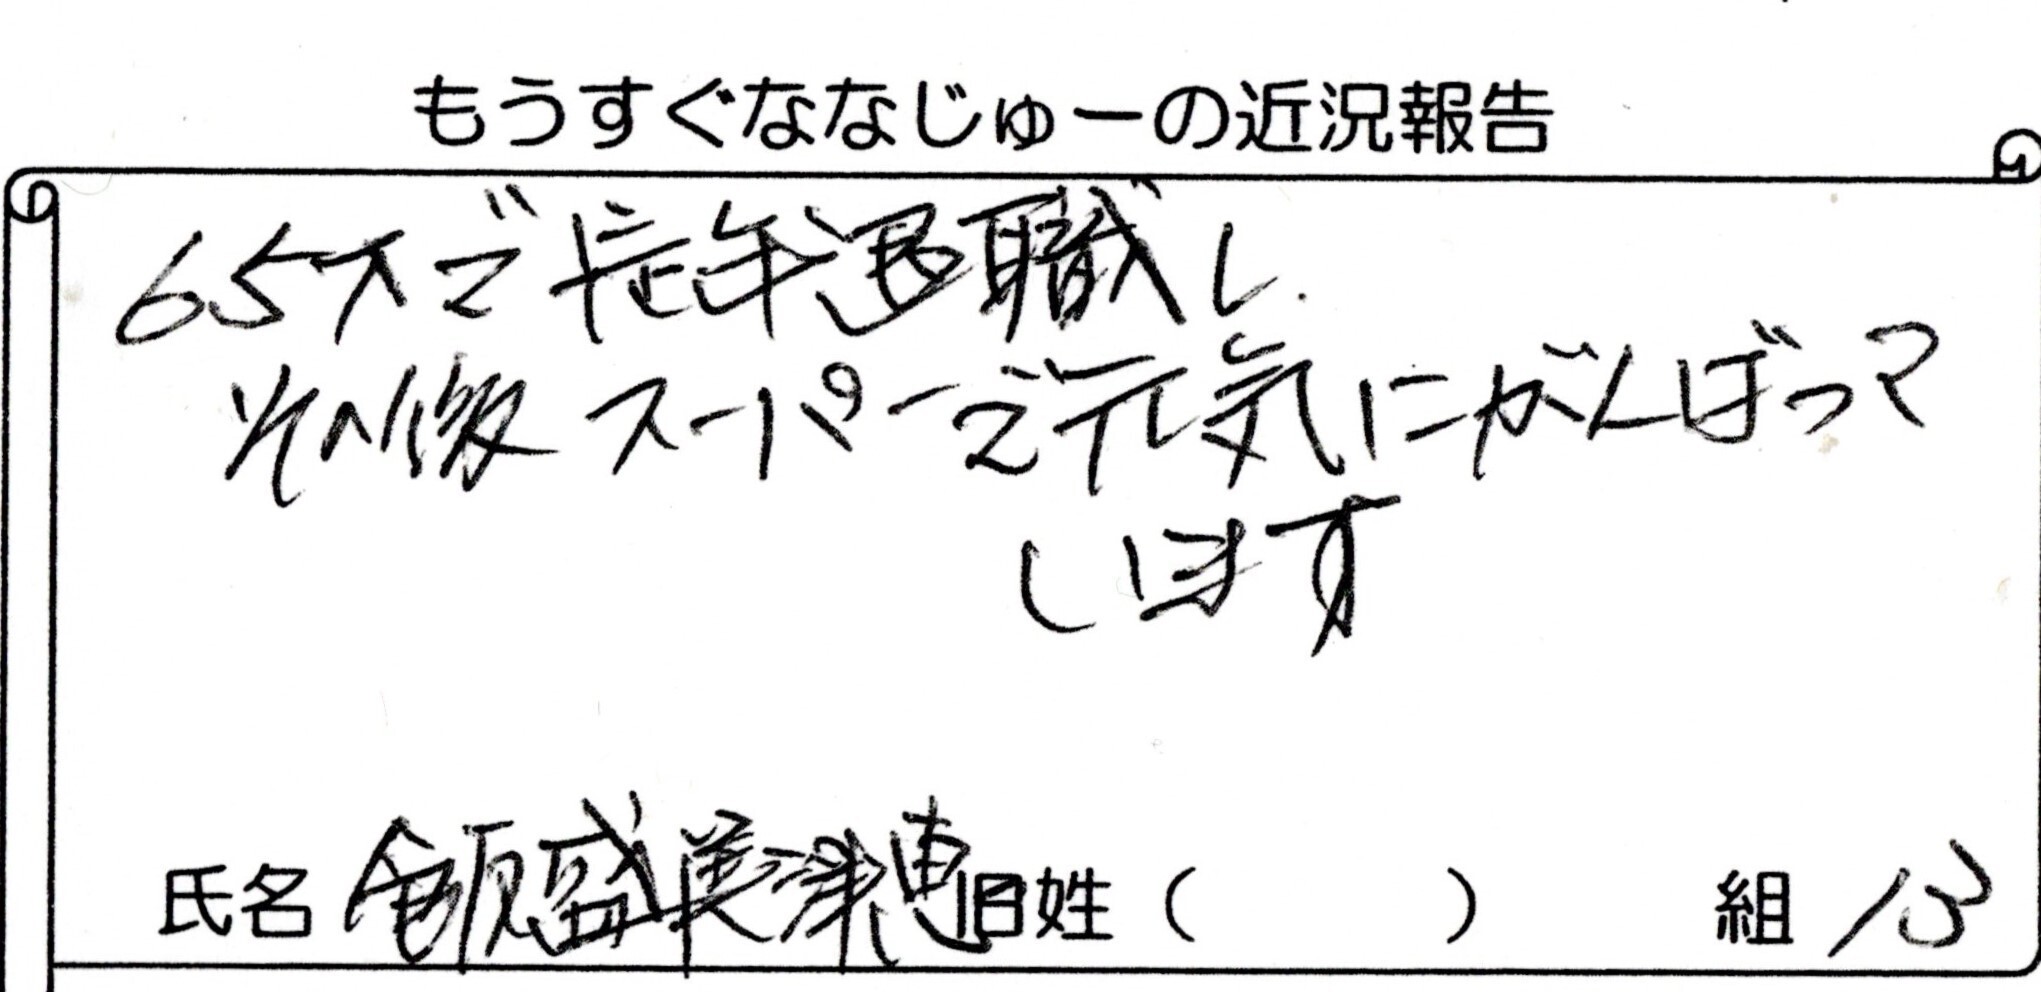 もうすぐななじゅーの近況報告
65才で定年退職し
その後スーパーで元気にがんばって
います
氏名 飯盛美津恵 旧姓( ) 組 13